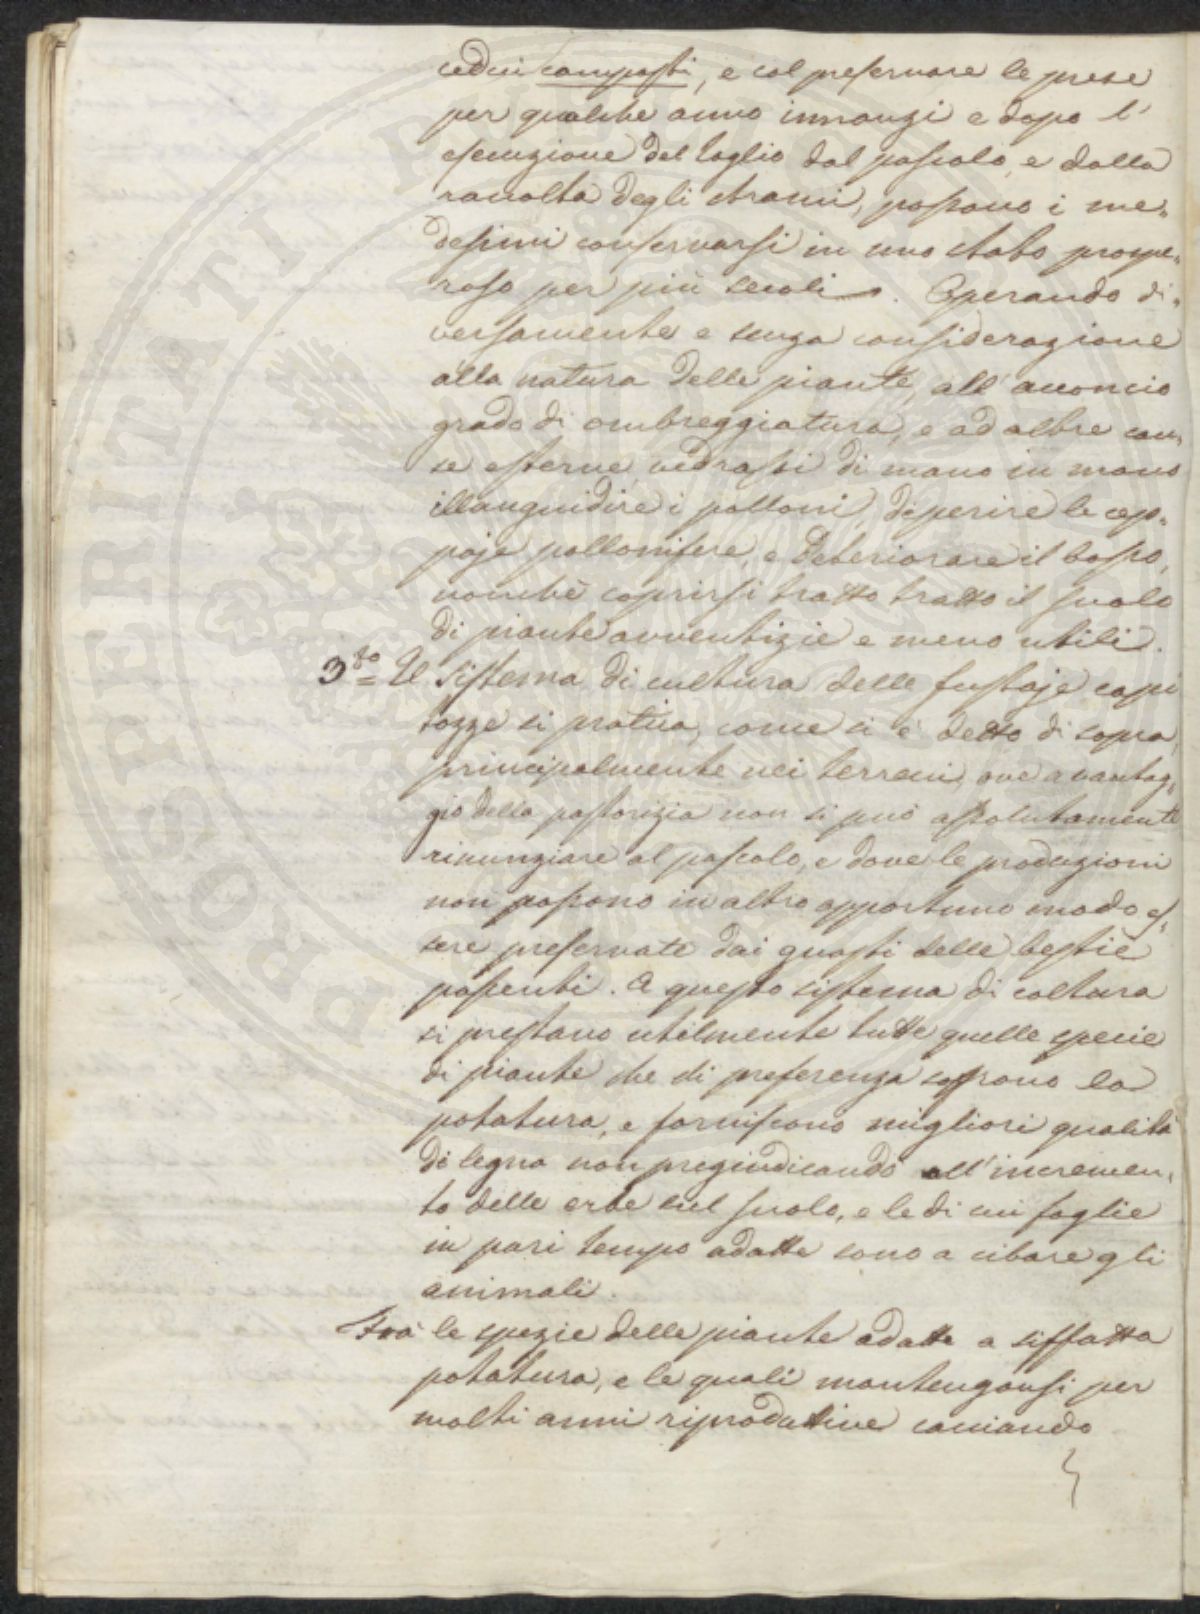 cedui composti, e col preservare le prese
per qualche anno innanzi e dopo l'
esecuzione del taglio dal pascolo, e dalla
raccolta degli strami, possono i me„
desimi conservarsi in uno stato prospe„
roso per più secoli. Operando di„
versamente e senza considerazione
alla natura delle piante, all'acconcio
grado di ombreggiatura, e ad altre cau„
se esterne, vedrassi di mano in mano
illanguidire i polloni, deperire le cep„
paje pollonifere, e deteriorare il bosco,
nonchè coprirsi tratto tratto il suolo
di piante avventizie e meno utili.
3.zo Il sistema di cultura delle fustaje capi
tozze si pratica, come si è detto di sopra,
principalmente nei terreni, ove a vantag„
gio della pastorizia non si può assolutamente
rinunziare al pascolo, e dove le produzioni
non possono in altro opportuno modo es„
sere preservate dai guasti delle bestie
pascenti. A questo sistema di coltura
si prestano utilmente tutte quelle specie
di piante che di preferenza soffrono la
potatura, e forniscono migliori qualità
di legna non pregiudicando all'incremen„
to delle erbe sul suolo, e le di cui foglie
in pari tempo adatte sono a cibare gli
animali.
Fra le spezie delle piante adatte a siffatta
potatura, e le quali mantengonsi per
molti anni riproduttive cacciando